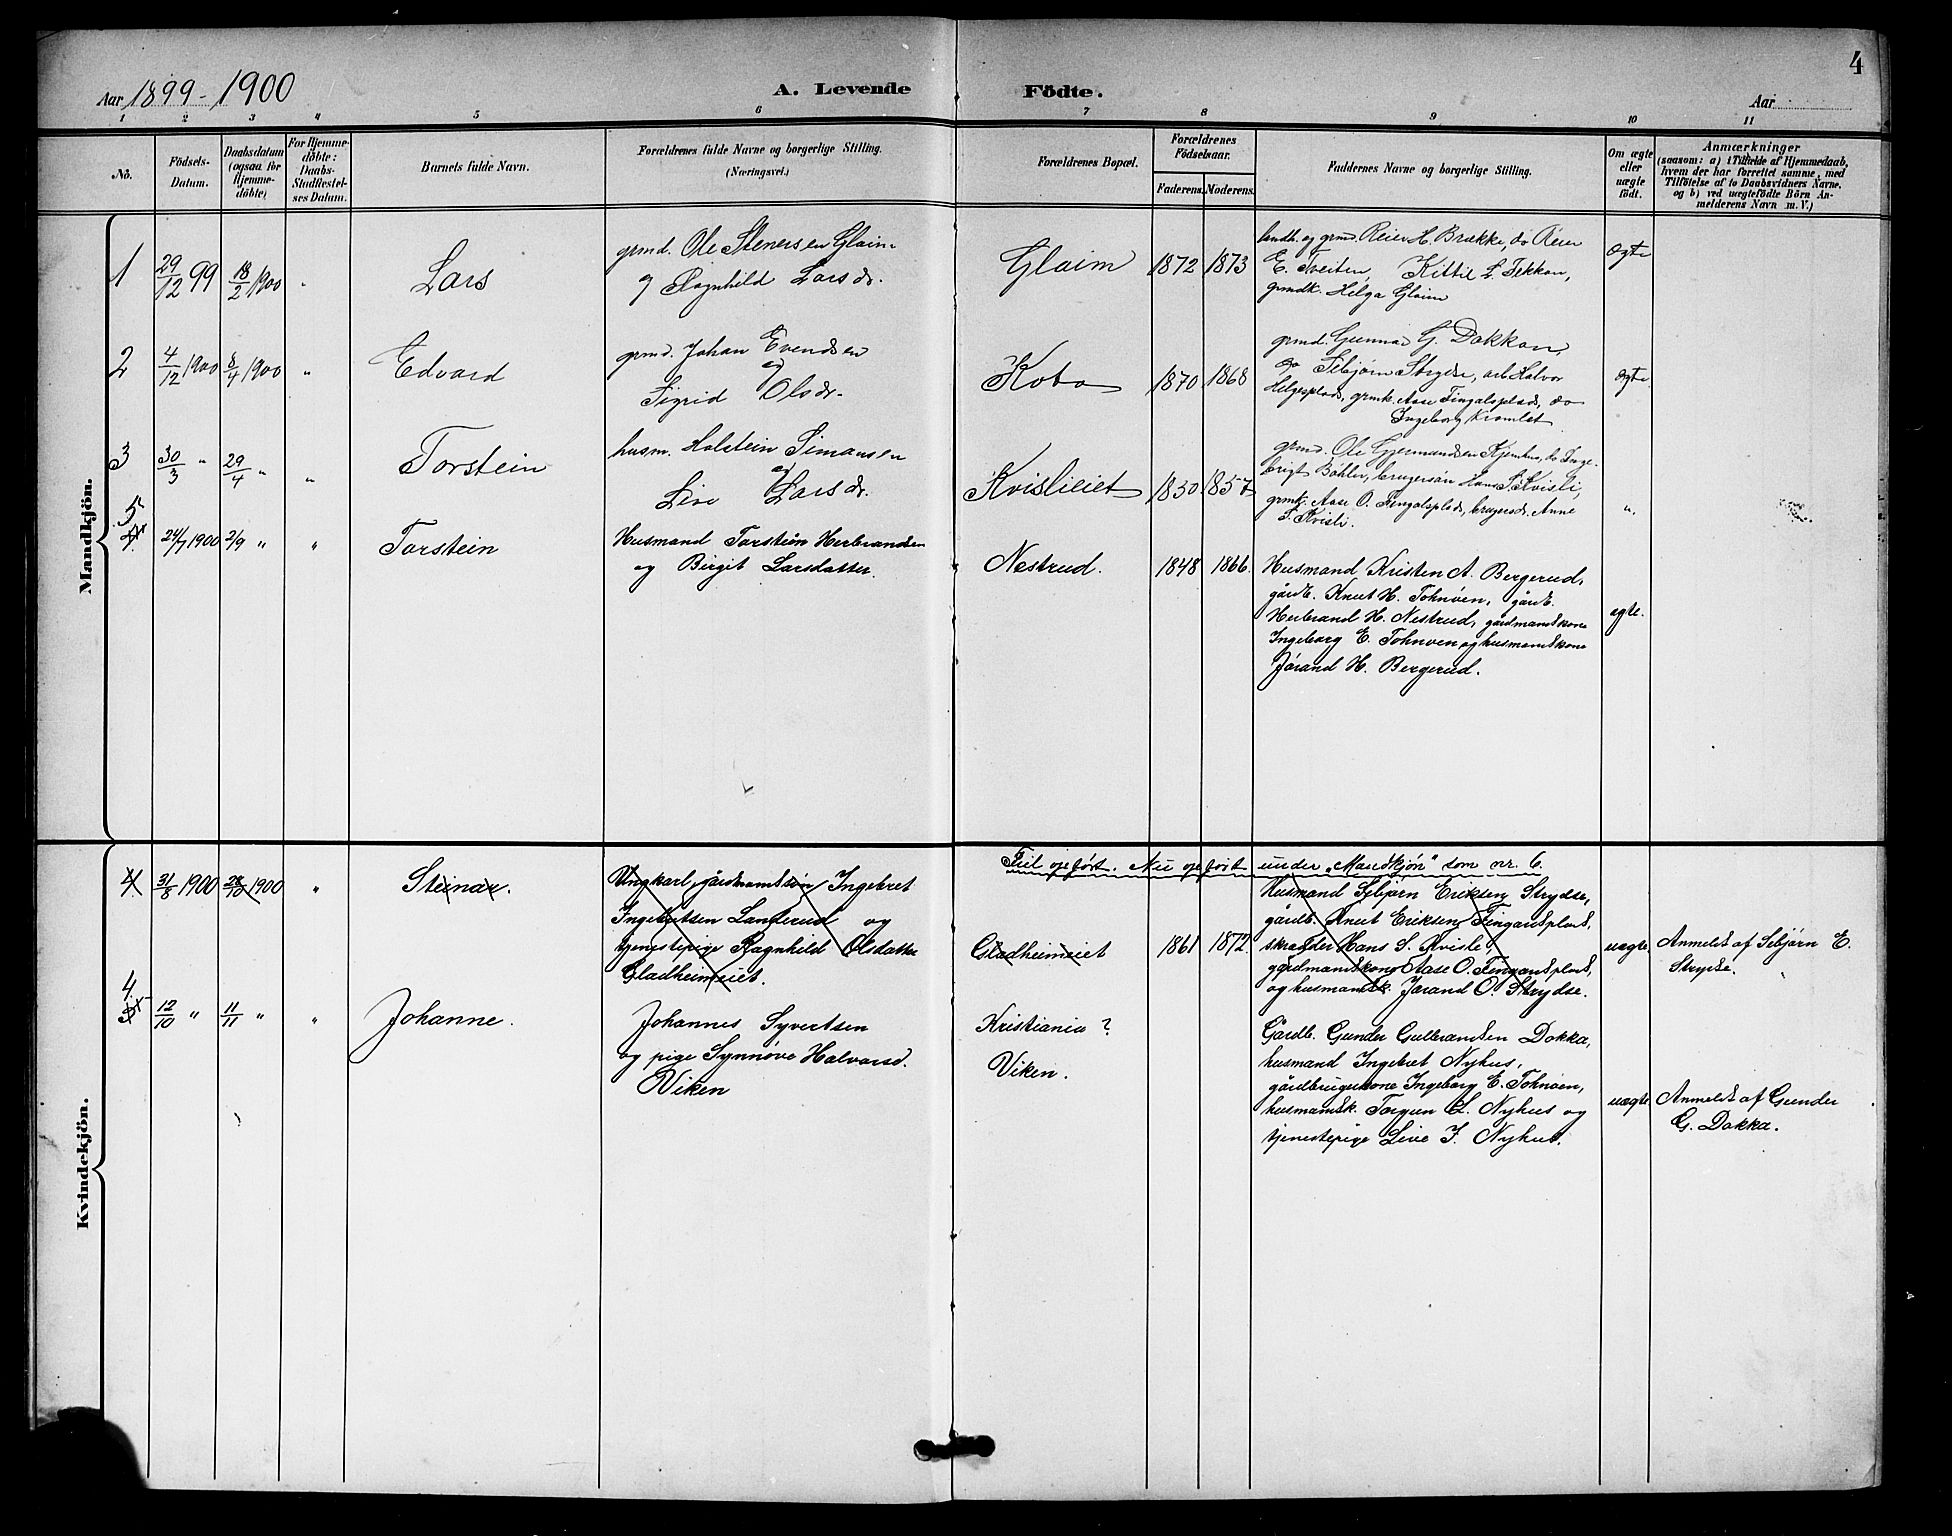 4
Aar 1899-1900
A. Levende Födte.
Aar
1 2 3 4 5 6 7 8 9 10 11
No.
Födsels-
Datum.
Daabsdatum
(ogsaa for
Hjemme-
döbte)
For Hjemme-
döbte:
Daabs-
Stadfæstel-
ses Datum.
Barnets fulde Navn.
Forældrenes fulde Navne og borgerlige Stilling.
(Næringsvei.)
Forældrenes Bopæl.
Forældrenes
Födselsaar.
Faderens. Moderens.
Faddernes Navne og borgerlige Stilling.
Om ægte
eller
uægte
födt.
Anmærkninger
(saasom: a) i Tilfælde af Hjemmedaab,
hvem der har forrettet samme, med
Tilföielse af to Daabsvidners Navne,
og b) ved uægtefödte Börn An-
melderens Navn m. V.)
Mandkjön.
1
29/12 99
18/2 1900
"
Lars
grmd. Ole Stenersen Glaim
og Ragnhild Larsdr.
Glaim
1872
1873
landh. og grmd. Reier H. Brække, do Reier
E. Tveiten, Kittil L. Tekkon,
grmdk. Helga Glaim
ægte
2
4/12 1900
8/4 1900
"
Edvard
grmd. Johan Evendsen
og
Sigrid Olsdr.
Kobo
1870
1868
grmd. Gunnar G. Dokkon,
do Sebjørn Strydse, arb. Halvor
Helgesplads, grmk. Aase Fingalsplads, do
Ingeborg
ægte.
3
30/3 "
29/4 "
"
Torstein
husm. Holstein Simonsen
og
Live Larsdr.
Kvislieiet
1850
1857
grmd. Ole Gjermundsen Kjemhus, do Inge-
brigt Böhler, brugersön Hans S. Kvisli,
grmk. Aase O. Fingalsplads, brugersd. Anne
S. Kvisli.
"
5
4.
24/7 1900
2/9 "
"
Torstein
Husmand Torstein Herbrandsen
og Birgit Larsdatter.
Nestrud.
1848
1866.
Husmand Kristen A. Bergerud,
gårdb. Knut H. Tohnöen, gårdb.
Herbrand H. Nestrud, gårdmandskone
Ingeborg E. Tohnöen og husmandskone
Jörand H. Bergerud.
ægte.
Kvindekjön.
Feil opført. Nu opført under "Mandkjön" som nr. 6.
4.
31/8 1900
28/10 1900
"
Steinar.
Ungkarl, gårdmandssön Ingebret
Ingebretsen Landerud og
tjenestepige Ragnhild Olsdatter
Gladheimeiet.
Gladheimeiet
1861
1872.
Husmand Sebjørn Eriksen Strydse,
gårdb. Knut Eriksen Fingardsplads,
skræder Hans S. Kvisle
gårdmandskone Aase O. Fingardsplads,
og husmandsk. Jørand O. Strydse.
uægte
Anmeldt af Sebjørn E.
Strydse.
4.
5
12/10 "
11/11 "
"
Johanne.
Johannes Syvertsen
og pige Synnøve Halvorsd.
Viken
Kristiania?
Viken.
Gårdb. Gunder Gulbrandsen Dokka,
husmand Ingebret Nyhus,
gårdbrugerkone Ingeborg E. Tohnöen,
husmandsk. Torgun L. Nyhus og
tjenestepige Live I. Nyhus.
uægte
Anmeldt af Gunder
G. Dokka.